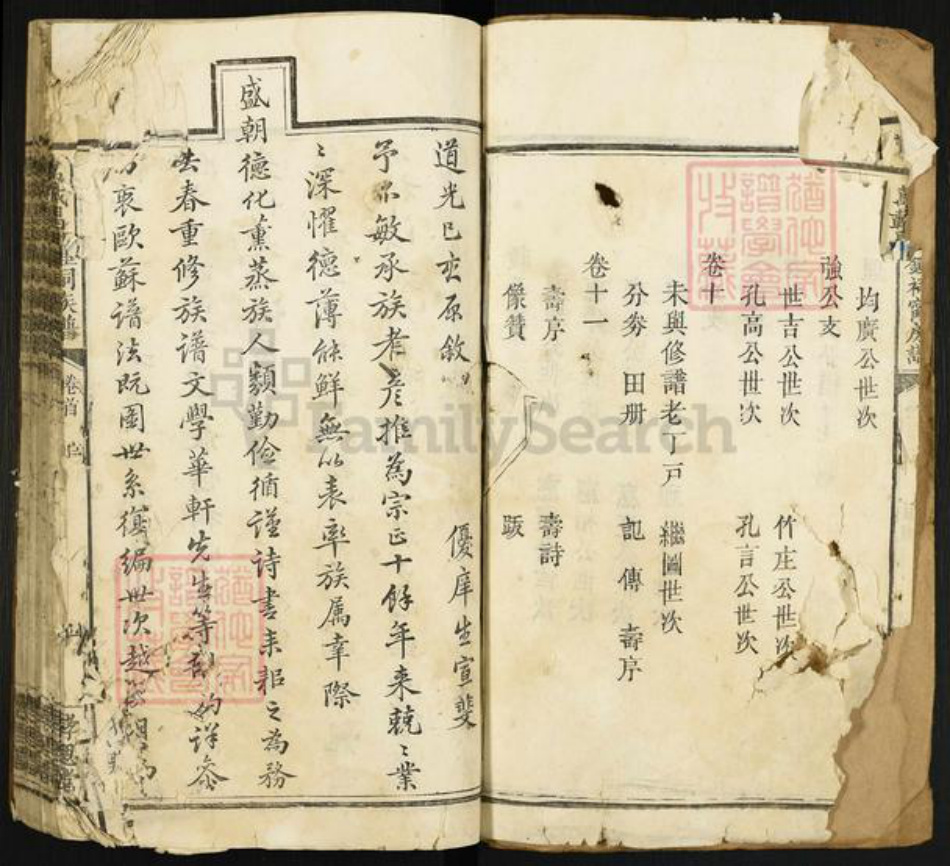 均廣公世次
強公支
世吉公世次 竹庄公世次
孔高公世次 孔言公世次
卷十
未與修譜老丁戶 繼圖世次
分劵 田册 記 傳 壽序
卷十一
壽序 壽詩
像贊 跋
道光已亥原敘
優庠生宣斐
予不敏承族老彥推為宗正十餘年來兢〻業
〻深懼德薄能鮮無以表率族属幸際
盛朝德化薰蒸族人纇勤儉循謹詩書耒耜之為務
春重修族譜文學華軒先生等
衷歐蘇譜法既圖世系復編世次越
卷首
FamilySearch